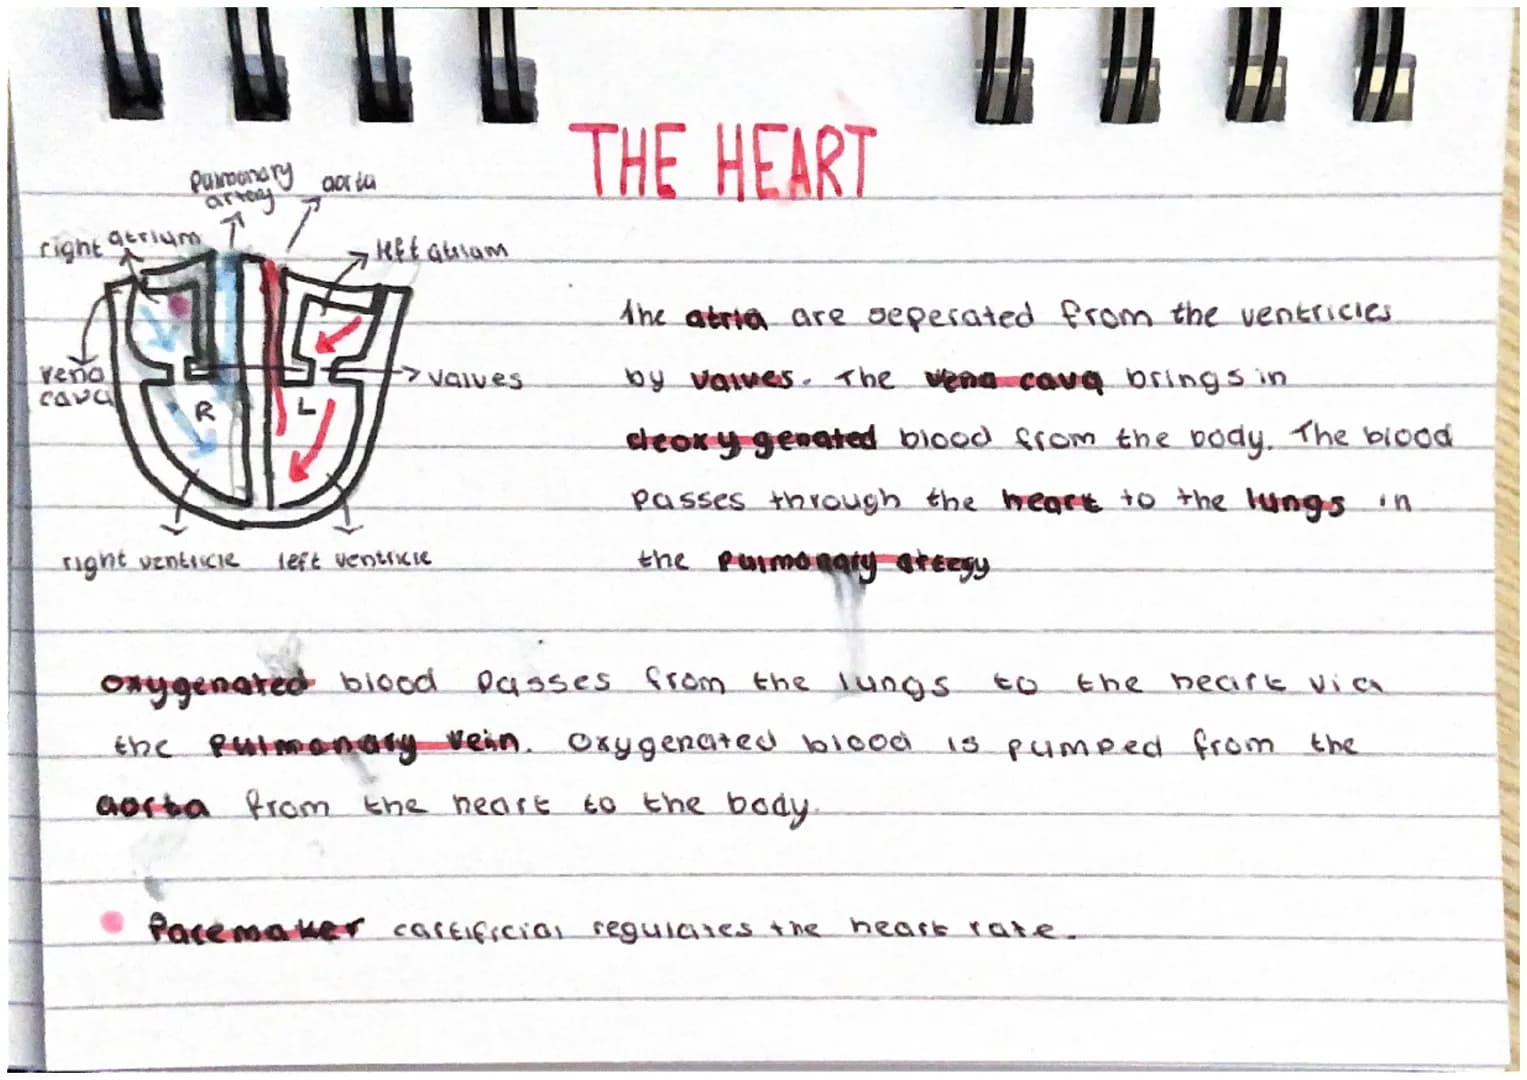 THE HEART
pulmonary
artery
aorta
right atrium
left atrium
vena
cava
valves
R
L
right ventricle
left ventricle
The atria are seperated from the ventricles
by valves. The vena cava brings in
deoxygenated blood from the body. The blood
passes through the heart to the lungs in
the pulmonary artery
oxygenated blood passes from the lungs to the heart via
the pulmonary vein. Oxygenated blood is pumped from the
aorta from the heart to the body.
Pacemaker cartificial regulates the heart rate.